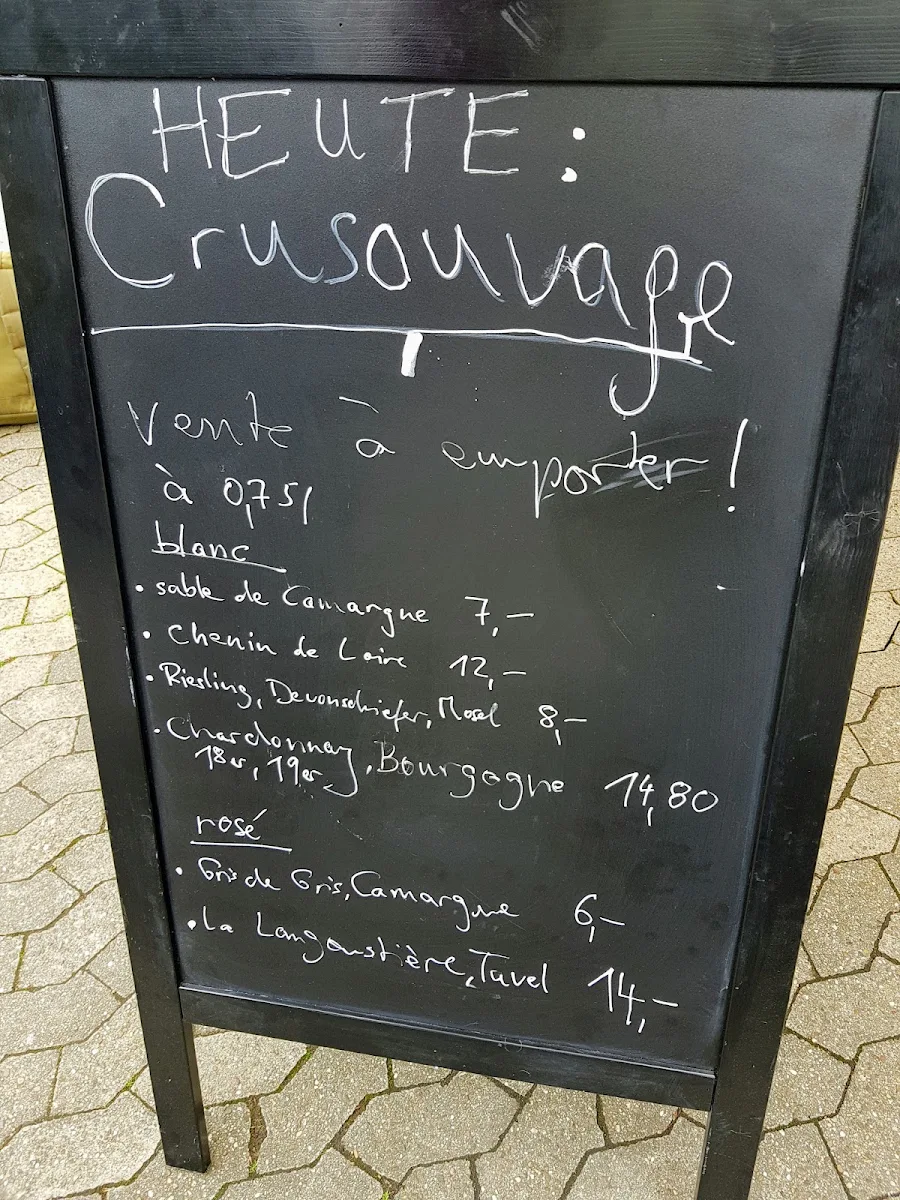 HEUTE:
Crusouvage
vente à emporter!
à 0,75l
blanc
• sable de Camargue 7,–
• Chenin de Loire 12,–
• Riesling, Devonschiefer, Mosel 8,–
• Chardonnay, Bourgogne 14,80
18er, 19er
rosé
• Gris de Gris, Camargue 6,–
• La Langoustière, Tavel 14,–